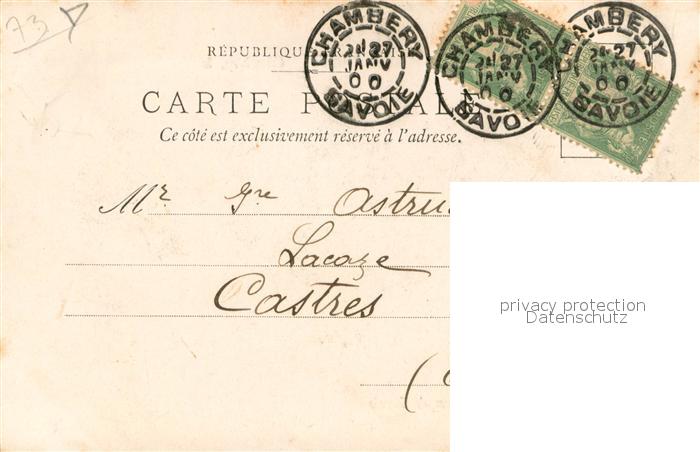 73
RÉPUBLIQUE FRANÇAISE
CHAMBERY
27
JANV
00
SAVOIE
CHAMBERY
27
JANV
00
SAVOIE
CHAMBERY
27
JANV
00
SAVOIE
CARTE POSTALE
Ce côté est exclusivement réservé à l'adresse.
Mr Gre Astru
Lacaze
Castres
(
privacy protection
Datenschutz